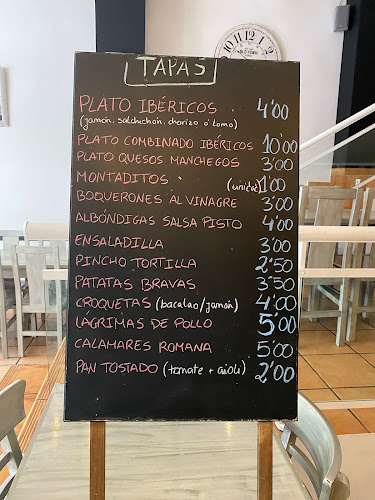 TAPAS
PLATO IBÉRICOS 4'00
(jamón, salchichón, chorizo ó lomo)
PLATO COMBINADO IBÉRICOS 10'00
PLATO QUESOS MANCHEGOS 3'00
MONTADITOS (unidad) 1'00
BOQUERONES AL VINAGRE 3'00
ALBÓNDIGAS SALSA PISTO 4'00
ENSALADILLA 3'00
PINCHO TORTILLA 2'50
PATATAS BRAVAS 3'50
CROQUETAS (bacalao/jamón) 4'00
LÁGRIMAS DE POLLO 5'00
CALAMARES ROMANA 5'00
PAN TOSTADO (tomate + alioli) 2'00